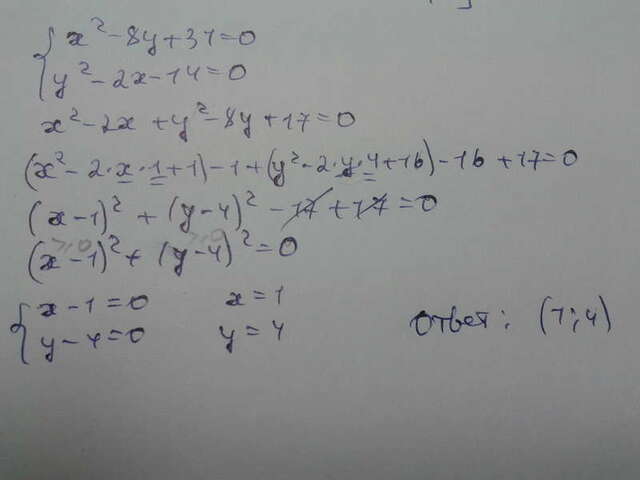 x² - 8y + 31 = 0
y² - 2x - 14 = 0
x² - 2x + y² - 8y + 17 = 0
(x² - 2·x·1 + 1) - 1 + (y² - 2·y·4 + 16) - 16 + 17 = 0
(x - 1)² + (y - 4)² - 17 + 17 = 0
≥0 ≥0
(x - 1)² + (y - 4)² = 0
x - 1 = 0 x = 1
y - 4 = 0 y = 4
Ответ: (1; 4)